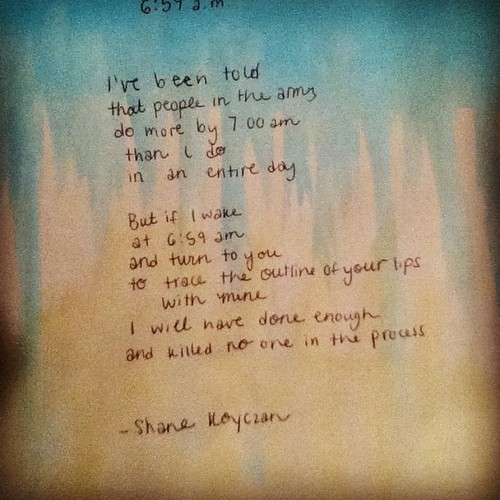 6:59 a.m
I've been told
that people in the army
do more by 7.00 am
than I do
in an entire day
But if I wake
at 6:59 am
and turn to you
to trace the outline of your lips
with mine
I will have done enough
and killed no one in the process
- Shane Koyczan